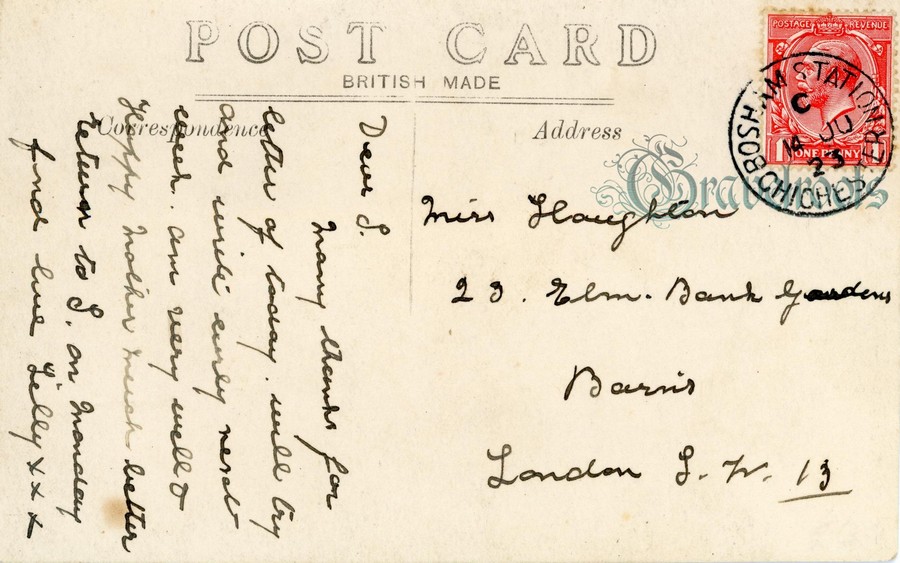 POST CARD
BRITISH MADE
Correspondence
Address
POSTAGE REVENUE
ONE PENNY
BOSHAM STATION
CHICHESTER
C
14 JU
23
Miss Haughton
23. Elm. Bank Gardens
Barns
London S. W. 13
Dear S.
Many thanks for
letter of today. will try
and write early next
week. am very well &
Happy Mother much better
return to S. on Monday
fond love Lilly x x x